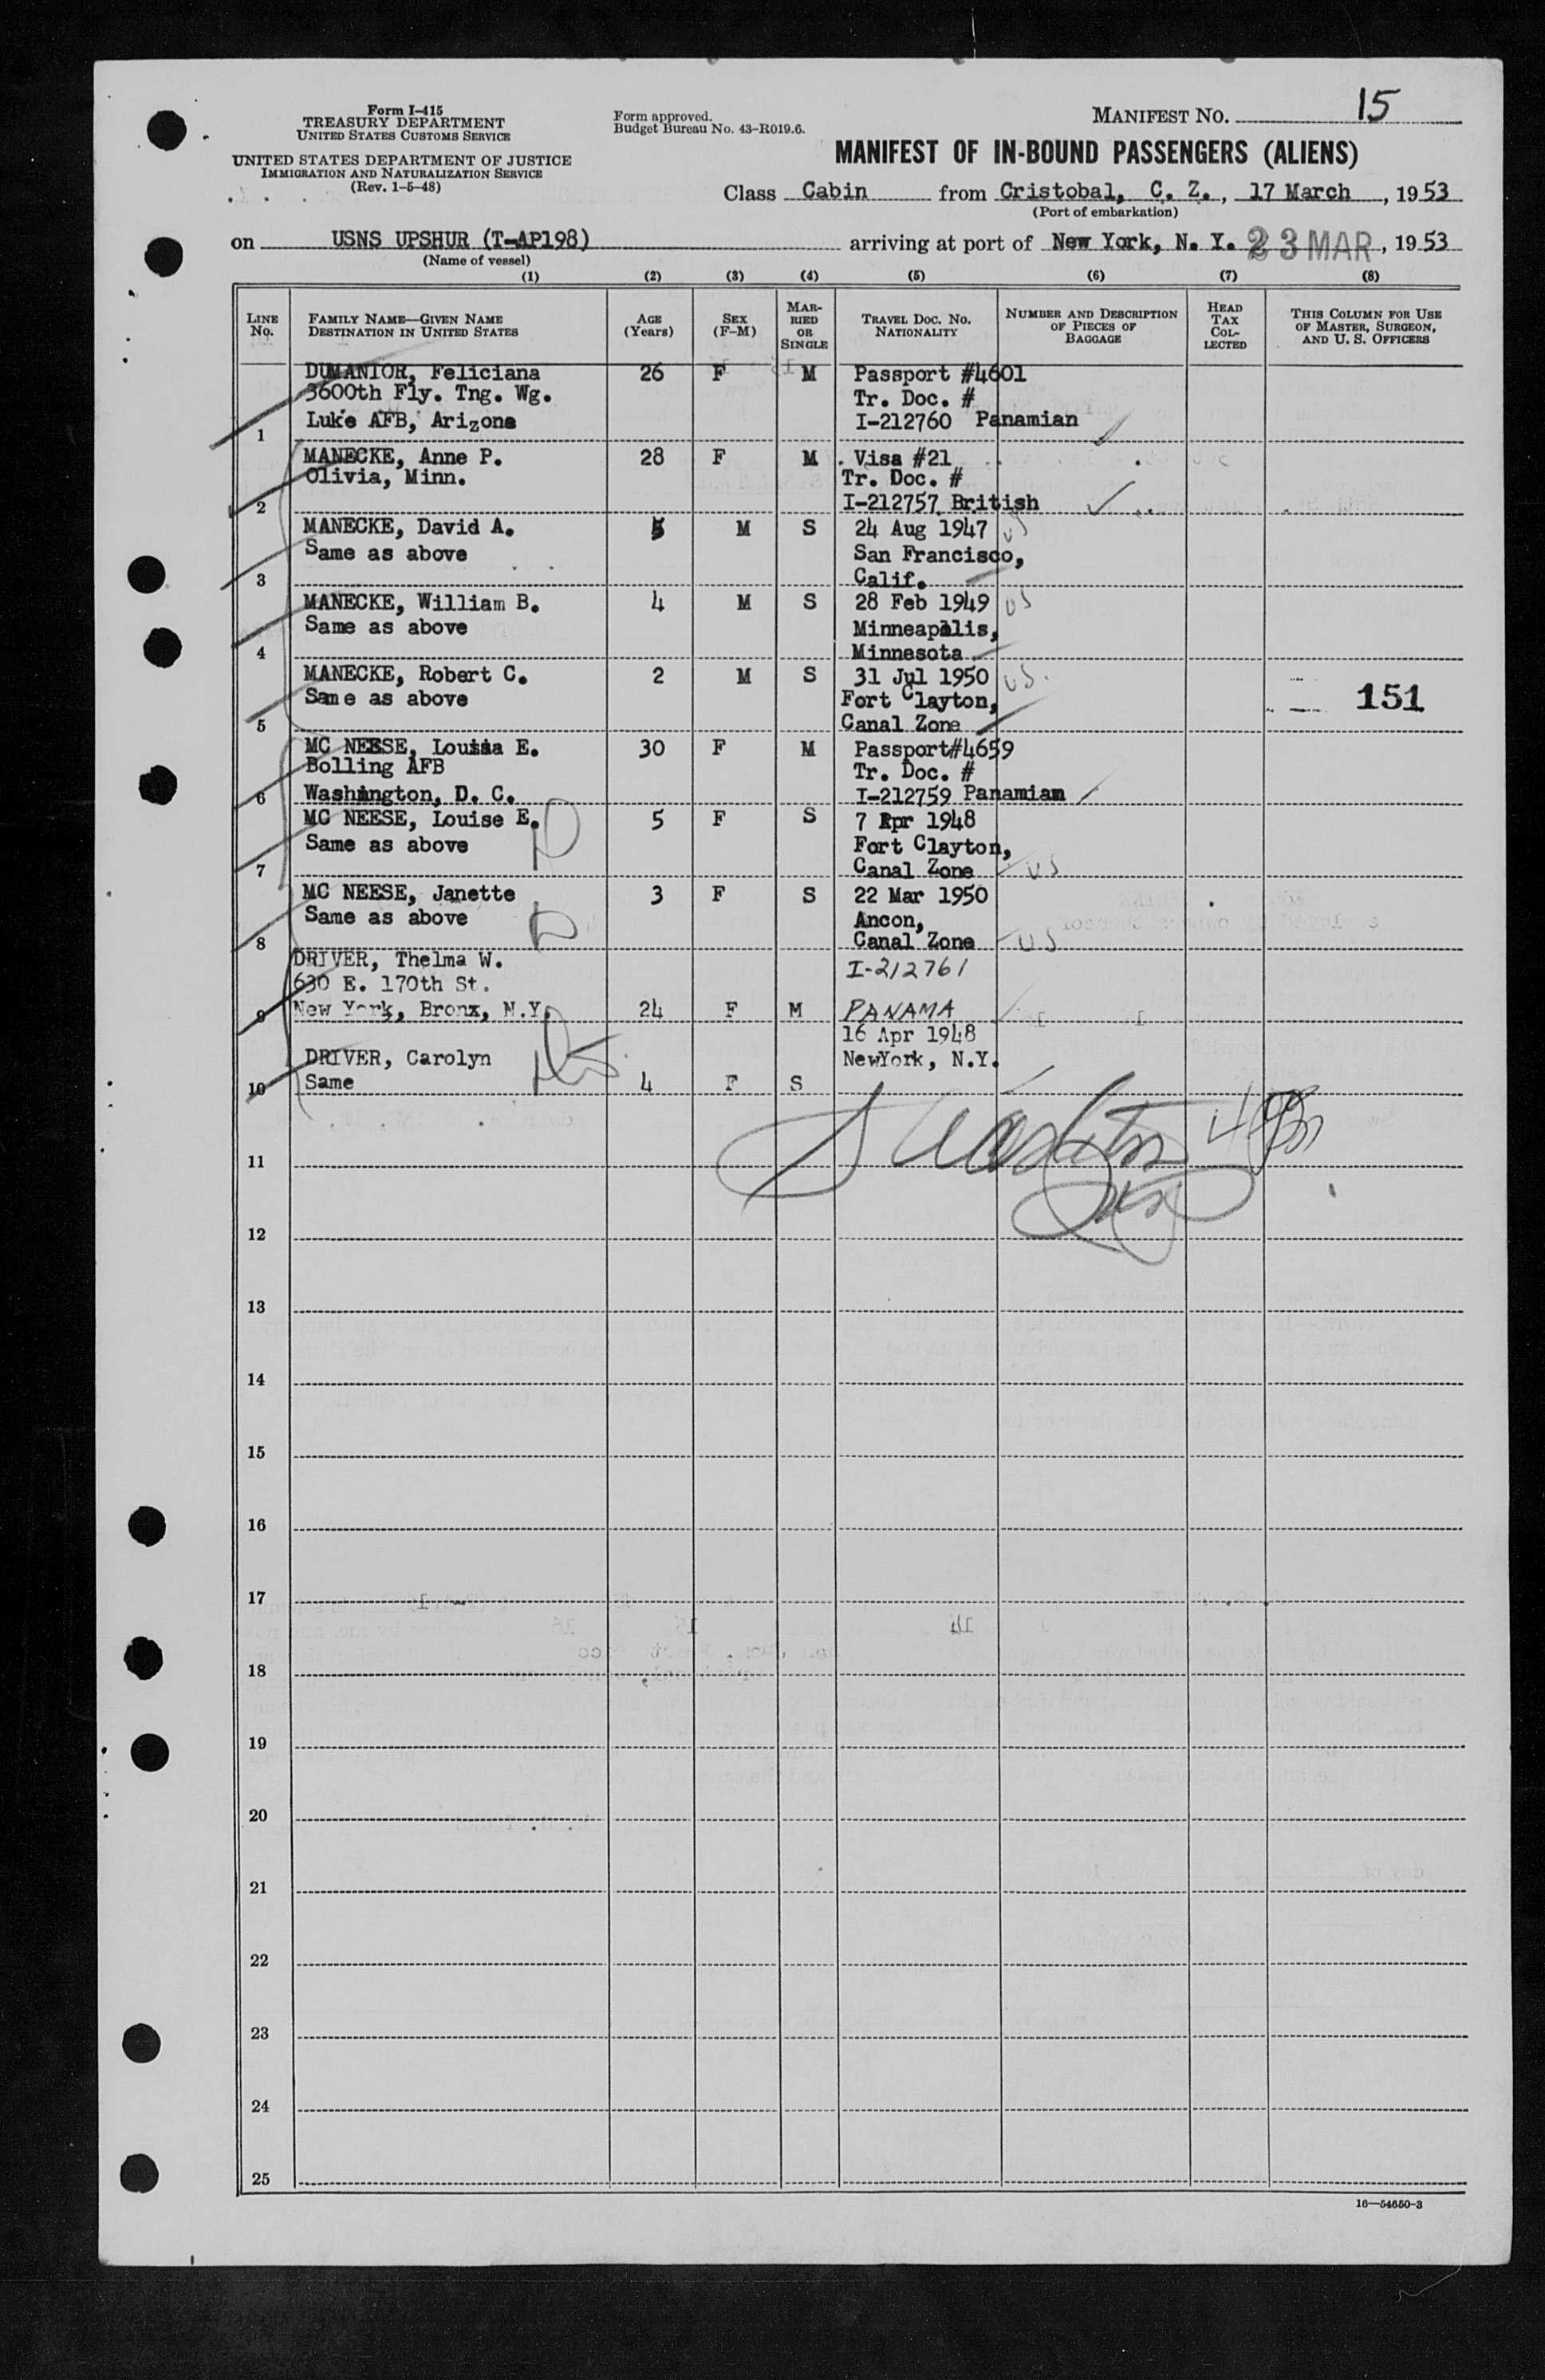 Form I-415
TREASURY DEPARTMENT
UNITED STATES CUSTOMS SERVICE
UNITED STATES DEPARTMENT OF JUSTICE
IMMIGRATION AND NATURALIZATION SERVICE
(Rev. 1-5-48)
Form approved.
Budget Bureau No. 43-R019.6.
MANIFEST NO. 15
MANIFEST OF IN-BOUND PASSENGERS (ALIENS)
Class Cabin from Cristobal, C. Z., 17 March, 1953
(Port of embarkation)
on USNS UPSHUR (T-AP198) arriving at port of New York, N. Y. 23 MAR, 1953
(Name of vessel)
(1) (2) (3) (4) (5) (6) (7) (8)
LINE No.
FAMILY NAME—GIVEN NAME
DESTINATION IN UNITED STATES
AGE
(Years)
SEX
(F-M)
MAR-
RIED
OR
SINGLE
TRAVEL DOC. NO.
NATIONALITY
NUMBER AND DESCRIPTION
OF PIECES OF
BAGGAGE
HEAD
TAX
COL-
LECTED
THIS COLUMN FOR USE
OF MASTER, SURGEON,
AND U. S. OFFICERS
DUMANIOR, Feliciana 26 F M Passport #4601
3600th Fly. Tng. Wg. Tr. Doc. #
Luke AFB, Arizona I-212760 Panamian
1
MANECKE, Anne P. 28 F M Visa #21
Olivia, Minn. Tr. Doc. #
2 I-212757 British
MANECKE, David A. 5 M S 24 Aug 1947 US
Same as above San Francisco,
3 Calif.
MANECKE, William B. 4 M S 28 Feb 1949 US
Same as above Minneapolis,
4 Minnesota
MANECKE, Robert C. 2 M S 31 Jul 1950 US.
Same as above Fort Clayton, 151
5 Canal Zone
MC NEESE, Louisa E. 30 F M Passport#4659
Bolling AFB Tr. Doc. #
6 Washington, D. C. I-212759 Panamian
MC NEESE, Louise E. 5 F S 7 Apr 1948
Same as above Fort Clayton,
7 Canal Zone US
MC NEESE, Janette 3 F S 22 Mar 1950
Same as above Ancon,
8 Canal Zone US
DRIVER, Thelma W. I-212761
630 E. 170th St.
9 New York, Bronx, N.Y. 24 F M PANAMA
16 Apr 1948
DRIVER, Carolyn NewYork, N.Y.
10 Same 4 F S
11
12
13
14
15
16
17
18
19
20
21
22
23
24
25
16—54650-3